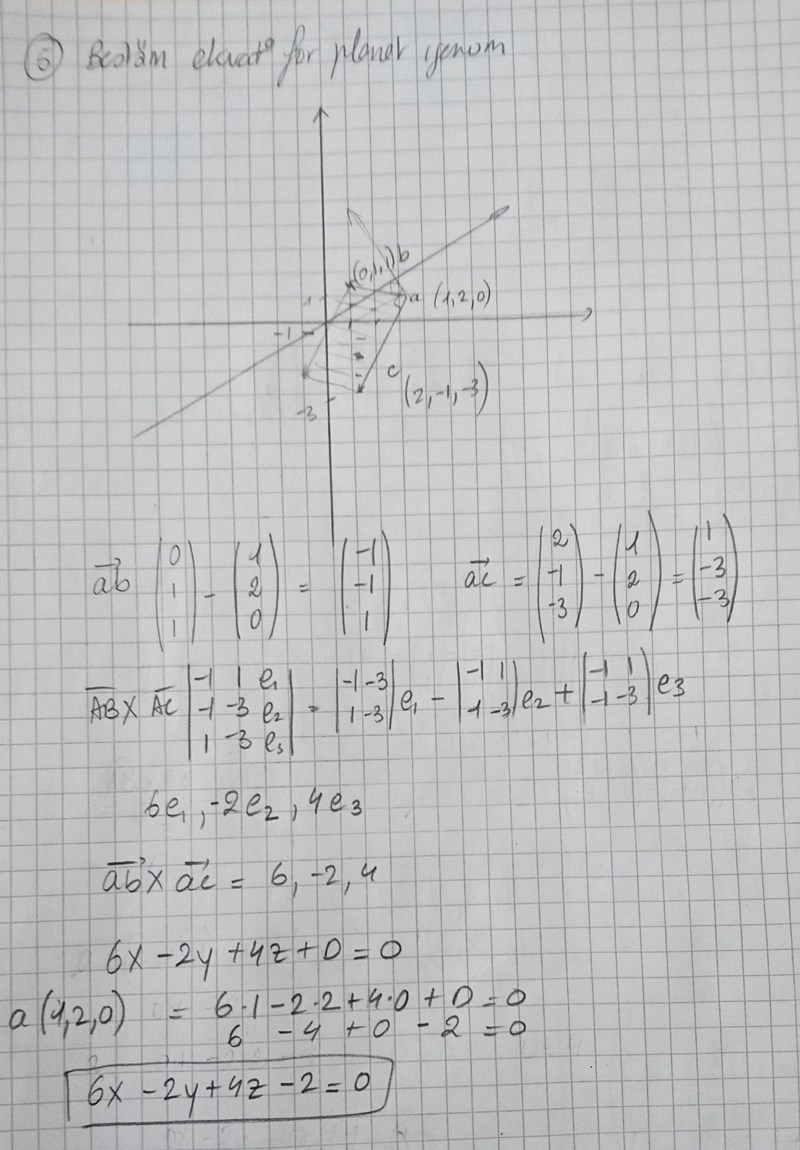 5) Bestäm ekvat° for planet genom
(0,1,1) b
a (1,2,0)
-1
c
(2,-1,-3)
-3
→ab (0 1 1) - (1 2 0) = (-1 -1 1)   →ac = (2 -1 -3) - (1 2 0) = (1 -3 -3)
AB × AC |-1 1 e₁; -1 -3 e₂; 1 -3 e₃| = |-1 -3; 1 -3| e₁ - |-1 1; 1 -3| e₂ + |-1 1; -1 -3| e₃
6e₁, -2e₂, 4e₃
→ab × →ac = 6, -2, 4
6x - 2y + 4z + D = 0
a (1,2,0) = 6·1 - 2·2 + 4·0 + D = 0
6 - 4 + 0 - 2 = 0
6x - 2y + 4z - 2 = 0